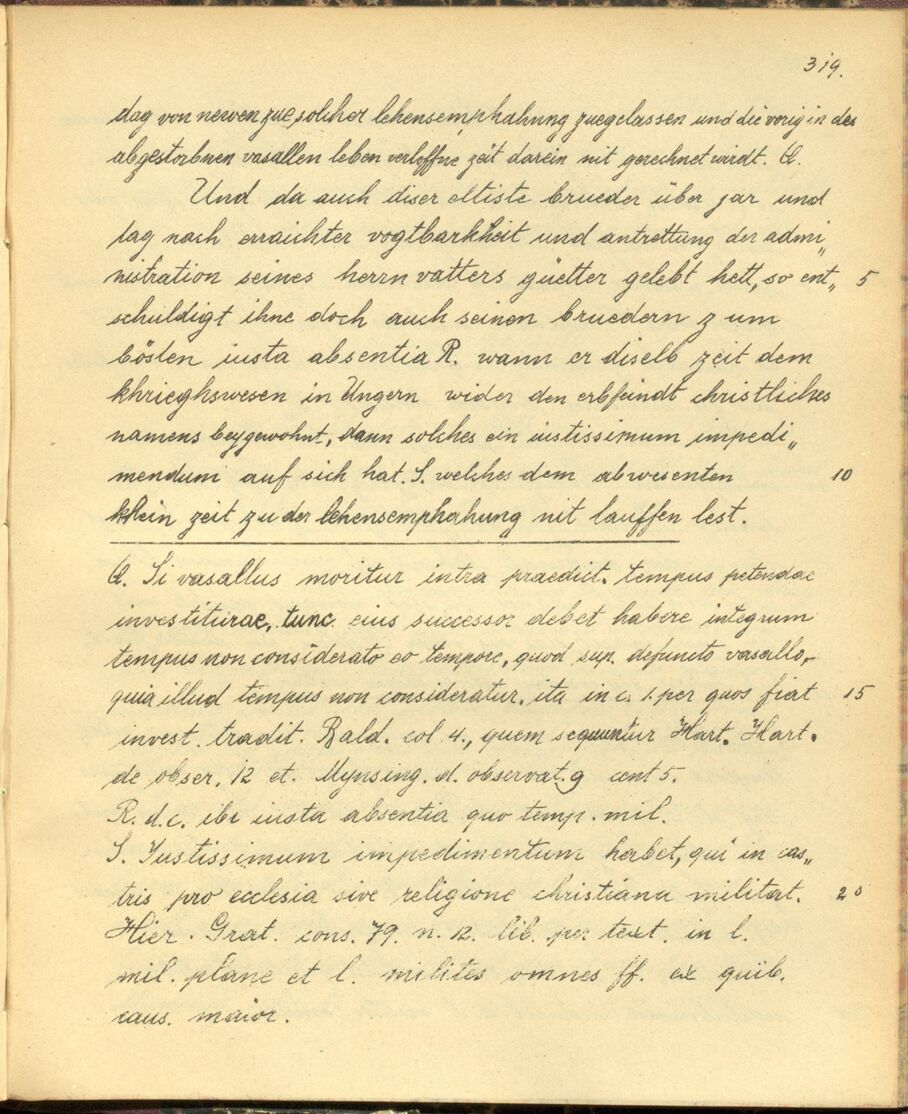 319.
dag von newen zue solcher lehensemphahung zuegelassen und die vorig in des
abgestorbnen vasallen leben verloffne zeit darein nit gerechnet wirdt. Q.
Und da auch diser eltiste brueder über jar und
tag nach erraichter vogtbarkheit und antrettung der admi„
nistration seines herrn vatters güetter gelebt hett, so ent„ 5
schuldigt ihne doch auch seinen bruedern zum
bösten iusta absentia R. wann er diselb zeit dem
khrieghswesen in Ungern wider den erbfeindt christliches
namens beygewohnt, dann solches ein iustissimum impedi„
mendum auf sich hat. S. welches dem abwesenten 10
khein zeit zu der lehensemphahung nit lauffen lest.
Q. Si vasallus moritur intra praedict. tempus petendae
investiturae, tunc eius successor debet habere integrum
tempus non considerato eo tempore, quod sup. defuncto vasallo,
quia illud tempus non consideratur. ita in c. 1. per quos fiat 15
invest. tradit. Bald. col 4., quem sequuntur Hart. Hart.
de obser. 12 et. Mynsing. d. observat. 9 cent 5.
R. d. c. ibi iusta absentia quo temp. mil.
S. Iustissimum impedimentum habet, qui in cas„
tris pro ecclesia sive religione christiana militat. 20
Hier. Grat. cons. 79. n. 12. lib. per text. in l.
mil. plane et l. milites omnes ff. ex quib.
caus. maior.